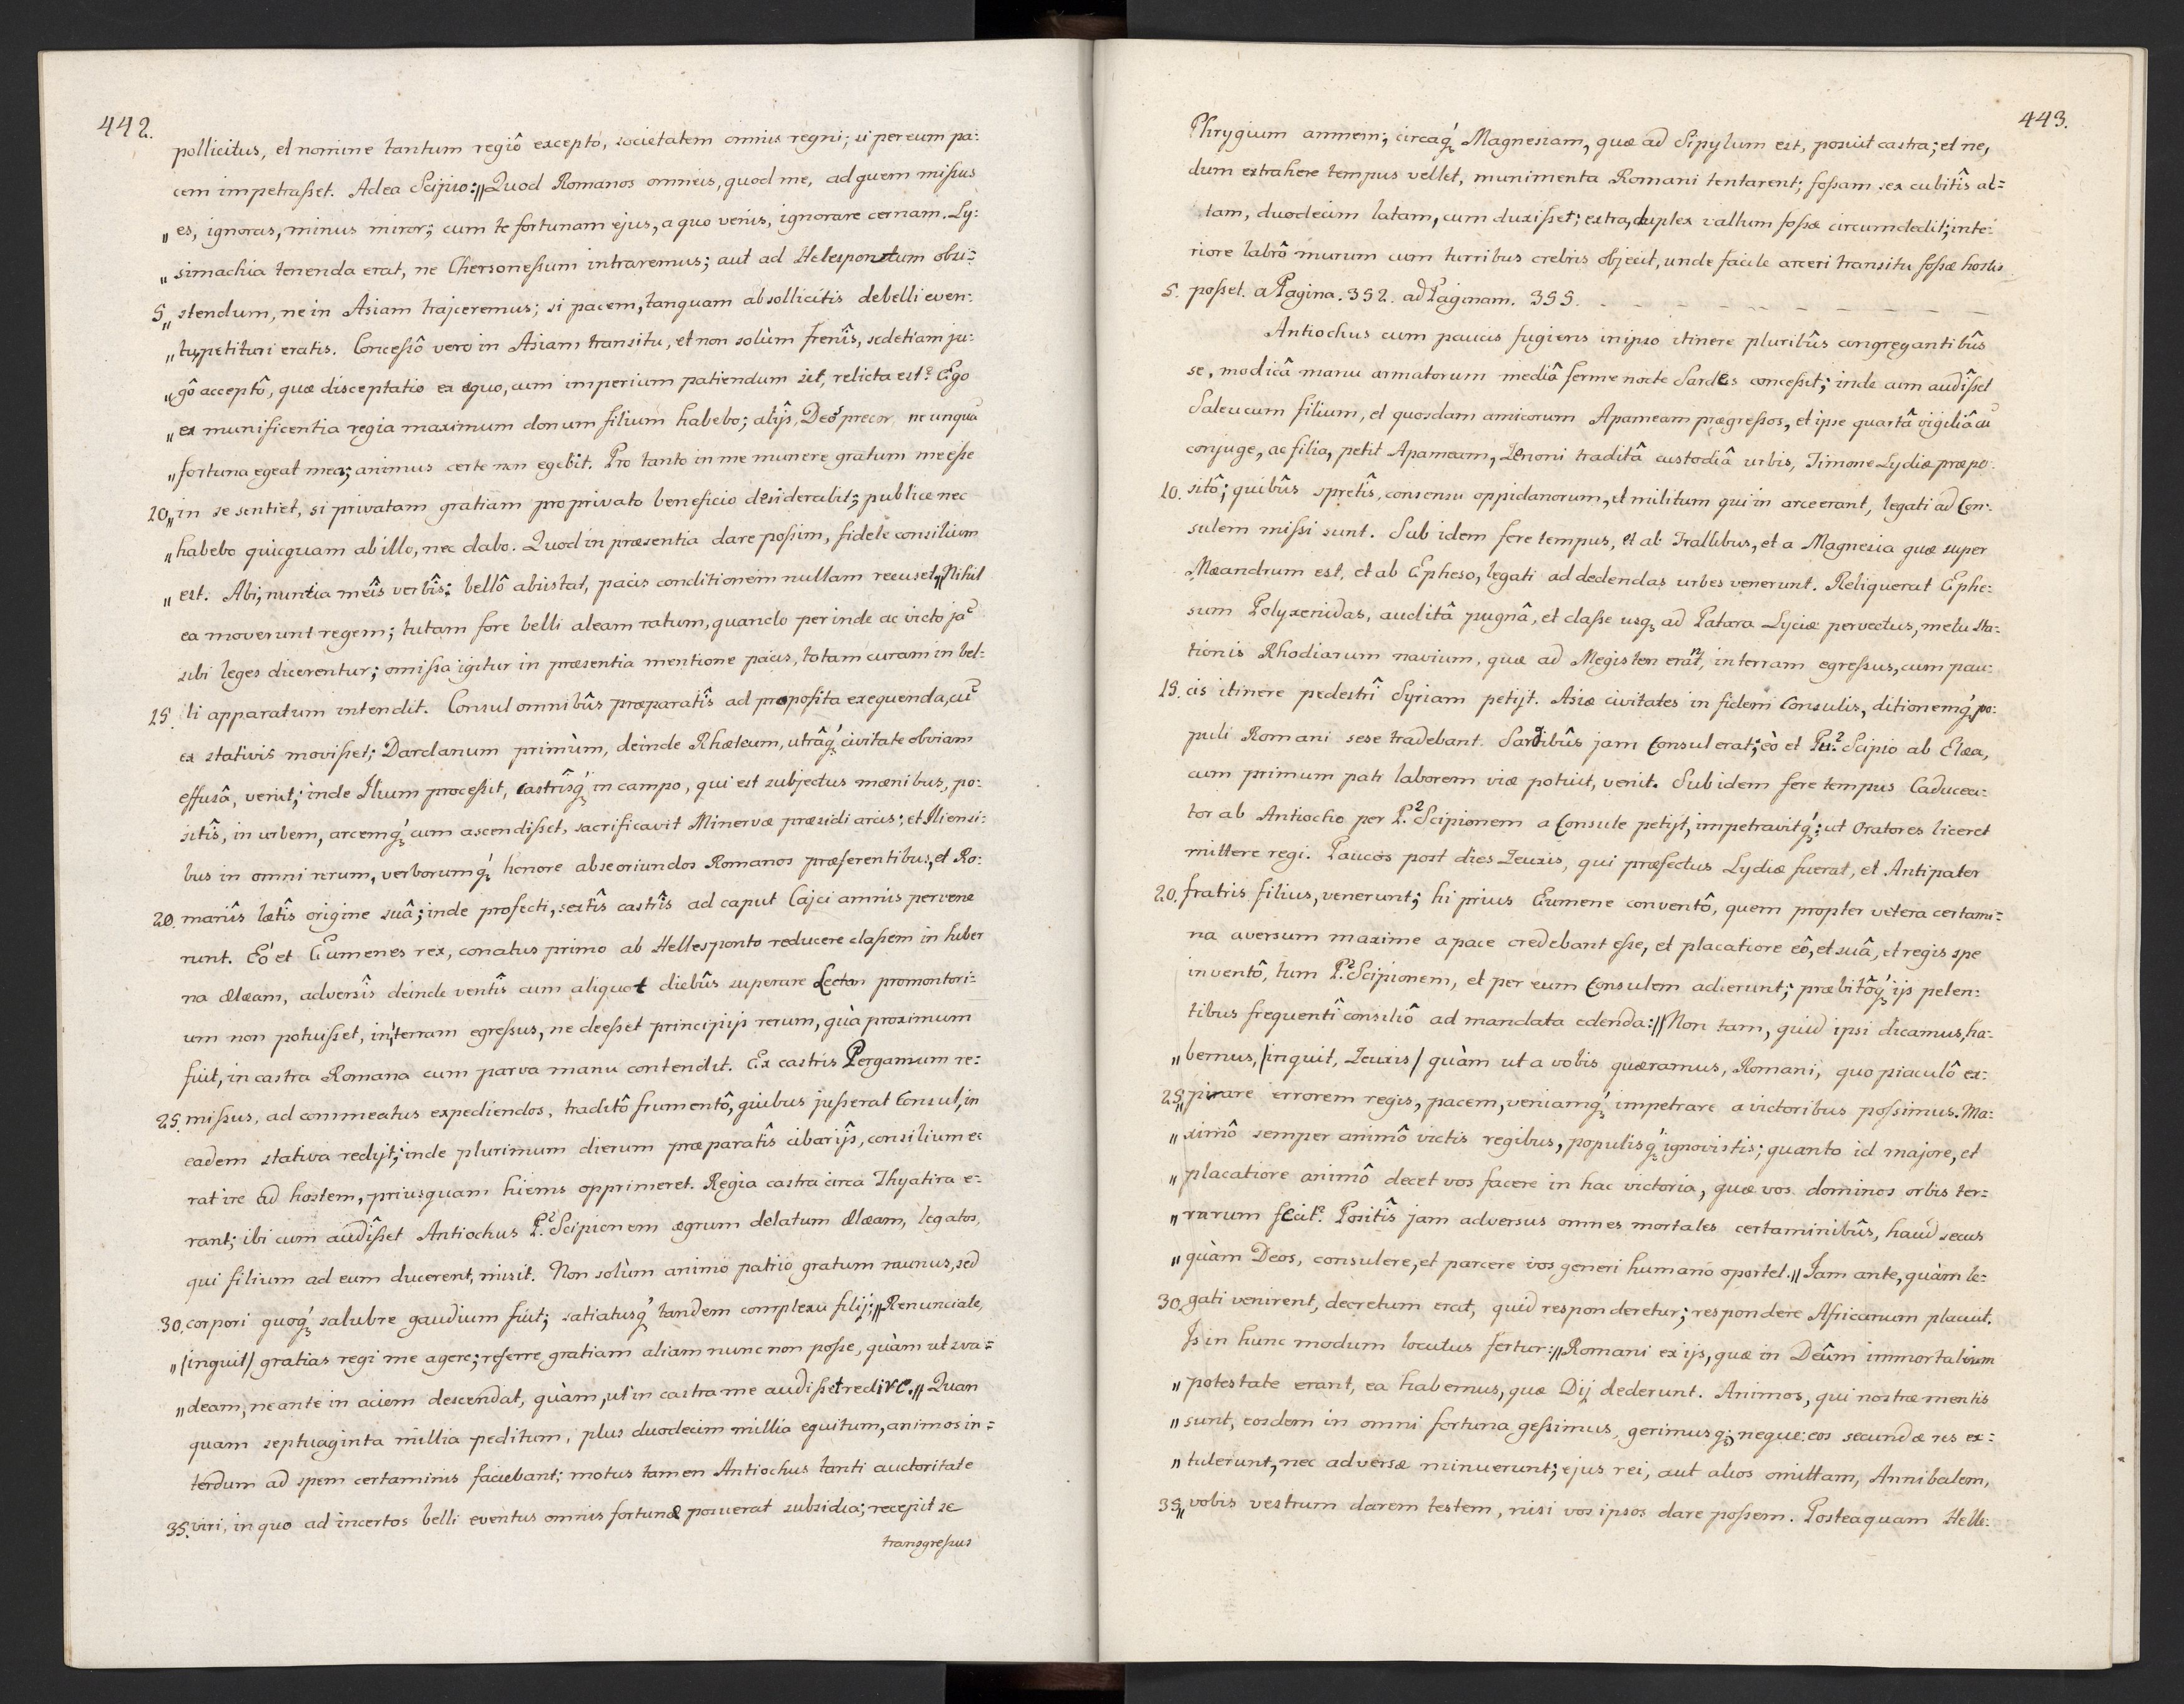 442.
pollicitus, et nomine tantum regiô excepto, societatem omnis regni; si per eum pa:
cem impetraßet. Ad ea Scipio:〃Quod Romanos omneis, quod me, ad quem mißus
〃es, ignoras, minus miror; cum te fortunam ejus, a quo venis, ignorare cernam. Ly:
〃simachia tenenda erat, ne Chersoneßum intraremus; aut ad Helespontum obsi:
5〃stendum, ne in Asiam trajceremus; si pacem, tanquam ab sollicitis de belli even:
〃tu, petituri eratis. Conceßô vero in Asiam transitu, et non solùm frenîs, sed etiam ju:
〃gô acceptô, quæ disceptatio ex æquo, cum imperium patiendum sit, relicta est? Ego
〃ex munificentia regia maximum donum filium habebo; alijs, Deos precor, ne unquã
〃fortuna egeat mea; animus certe non egebit. Pro tanto in me munere gratum me eße
10〃in se sentiet, si privatam gratiam pro privato beneficio desiderabit; publice nec
〃habebo quicquam ab illo, nec dabo. Quod in præsentia dare poßim, fidele consilium
〃est. Abi, nuntia meîs verbîs: bellô absistat, pacis conditionem nullam recuset〃Nihil
ea moverunt regem; tutam fore belli aleam ratum, quando perinde ac victo jã
sibi leges dicerentur; omißa igitur in præsentia mentione pacis, totam curam in bel:
15. li apparatum intendit. Consul omnibûs præparatîs ad proposita exequenda, cũ
ex stativis movißet; Dardanum primùm, deinde Rhæteum, utrâq́ civitate obviam
effusâ, venit; inde Ilium proceßit, castrîsq́ in campo, qui est subjectus mænibus, po:
sitîs, in urbem, arcemq́ cum ascendißet, sacrificavit Minervæ præsidi arcis; et Iliensi:
bus in omni rerum, verborumq́ honore ab se oriundos Romanos præferentibus, et Ro:
20. manîs lætîs origine suâ; inde profecti, sextîs castrîs ad caput Cajci amnis pervene
runt. Eò et Eumenes rex, conatus primo ab Hellesponto reducere claßem in hiber
na Elæam, adversîs deinde ventîs cum aliquot diebûs superare Lecton promontori:
um non potuißet, in terram egreßus, ne deeßet principijs rerum, quà proximum
fuit, in castra Romana cum parva manu contendit. Ex castris Pergamum re:
25. mißus, ad commeatus expediendos, traditô frumentô, quibus jußerat Consul, in
eadem stativa redijt; inde plurimum dierum præparatîs cibarijs, consilium e:
rat ire ad hostem, priusquam hiems opprimeret. Regia castra circa Thyatira e:
rant; ibi cum audîßet Antiochus P.² Scipionem ægrum delatum Elæam, legatos,
qui filium ad eum ducerent, misit. Non solùm animo patrio gratum munus, sed
30. corpori quoq́ salubre gaudium fuit; satiatusq́ tandem complexu filij:〃Renunciate,
〃/inquit/ gratias regi me agere; referre gratiam aliam nunc non poße, quàm ut sva:
〃deam, ne ante in aciem descendat, quàm, ut in castra me audißet redire.〃 Quan
quam septuaginta millia peditum, plus duodecim millia equitum, animos in:
terdum ad spem certaminis faciebant; motus tamen Antiochus tanti auctoritate
35. viri, in quo ad incertos belli eventus omnis fortunæ posuerat subsidia; recepit se
transgreßus
443.
Phrygium amnem; circaq́ Magnesiam, quæ ad Sipylum est, posuit castra; et ne,
dum extrahere tempus vellet, munimenta Romani tentarent; foßam sex cubitîs al:
tam, duodecim latam, cum duxißet; extra, duplex vallum foßæ circumdedit; inte:
riore labrô murum cum turribus crebris objecit, unde facile arceri transitu foßæ hostis
5. poßet. a Pagina. 352. ad Paginam. 355. _ _ _ _ _ _ _ _
Antiochus cum paucis fugiens in ipso itinere pluribûs congregantibûs
se, modicâ manu armatorum mediâ ferme nocte Sardes conceßit; inde cum audîßet
Saleucum filium, et quosdam amicorum Apameam prægreßos, et ipse quartâ vigiliâ cũ
conjuge, ac filia, petit Apameam, Zenoni traditâ custodiâ urbis, Timone Lydiæ præpo:
10. sitô; quibûs spretîs, consensu oppidanorum, et militum qui in arce erant, legati ad Con:
sulem mißi sunt. Sub idem fere tempus, et ab Trallibus, et a Magnesia quæ super
Mæandrum est, et ab Epheso, legati ad dedendas urbes venerunt. Reliquerat Ephe:
sum Polyxenidas, auditâ pugnâ, et claße usq́ ad Patara Lyciæ pervectus, metu sta:
tionis Rhodiarum navium, quæ ad Megisten erant, in terram egreßus, cum pau:
15. cis itinere pedestrî Syriam petijt. Asiæ civitates in fidem Consulis, ditionemq́ po:
puli Romani sese tradebant. Sardibûs jam Consul erat; eò et Pu.² Scipio ab Elæa,
cum primum pati laborem viæ potuit, venit. Sub idem fere tempus Caducea:
tor ab Antiocho per P.² Scipionem a Consule petijt, impetravitq́; ut Oratores liceret
mittere regi. Paucos post dies Zeuxis, qui præfectus Lydiæ fuerat, et Antipater
20. fratris filius, venerunt; hi prius Eumene conventô, quem propter vetera certami:
na aversum maxime a pace credebant eße, et placatiore eô, et suâ, et regis spe
inventô, tum P.² Scipionem, et per eum Consulem adierunt; præbitôq́ ijs peten:
tibus frequentî consiliô ad mandata edenda:〃Non tam, quid ipsi dicamus, ha:
〃bemus, /inquit, Zeuxis/ quàm ut a vobis quæramus, Romani, quo piaculô ex:
25〃piare errorem regis, pacem, veniamq́ impetrare a victoribus poßimus. Ma:
〃ximô semper animô victis regibus, populisq́ ignovistis; quanto id majore, et
〃placatiore animô decet vos facere in hac victoria, quæ vos dominos orbis ter:
〃rarum fecit? Positîs jam adversus omnes mortales certaminibûs, haud secus
〃quàm Deos, consulere, et parcere vos generi humano oportet.〃 Iam ante, quàm le:
30. gati venirent, decretum erat, quid responderetur; respondere Africanum placuit.
Is in hunc modum locutus fertur:〃Romani ex ijs, quæ in Deûm immortalium
〃potestate erant, ea habemus, quæ Dij dederunt. Animos, qui nostræ mentis
〃sunt, eosdem in omni fortuna geßimus, gerimusq́; neque: eos secundæ res ex:
〃tulerunt, nec adversæ minuerunt; ejus rei, aut alios omittam, Annibalem,
35〃vobis vestrum darem testem, nisi vos ipsos dare poßem. Posteaquam Helle: